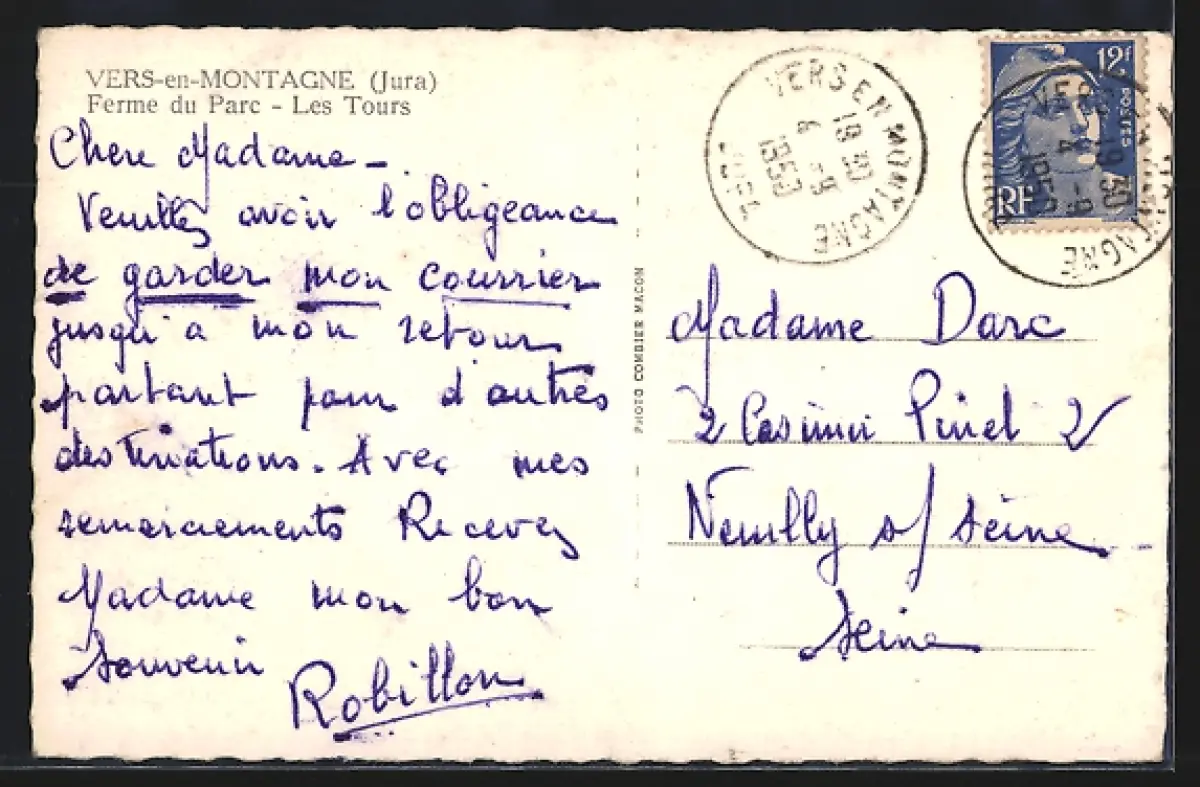 VERS-en-MONTAGNE (Jura)
Ferme du Parc - Les Tours
Chere Madame -
Veuillez avoir l'obligeance
de garder mon courrier
jusqu'a mon retour
partant pour d'autres
destinations. Avec mes
remerciements Recevez
Madame mon bon
Souvenir
Robillon
PHOTO COMBIER MACON
VERS EN MONTAGNE
19 30
4 -9
1950
JURA
12F
POSTES
RF
VERS EN MONTAGNE
19 30
4 -9
1950
JURA
Madame Darc
2 Casimir Pinel 2
Neuilly s/ Seine
Seine